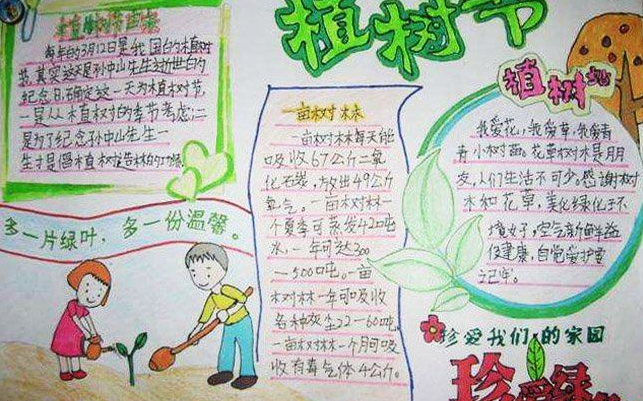 植树节
每年的3月12日是我国的植树
节,其实这天是孙中山先生逝世的
纪念日,确定这一天为植树节,
一是从植树的季节考虑;二
是为了纪念孙中山先生一
生才是倡植树造林的功绩
多一片绿叶,多一份温馨。
一亩树林
一亩树林每天能
吸收67公斤二氧
化石炭,放出49公斤
氧气。一亩树林一
个夏季可蒸发42吨
水,一年可达300
—500吨。一亩
树林一年可吸收
各种灰尘22—60吨
一亩树林一个月可吸
收有毒气体4公斤。
植树
我爱花,我爱草,我爱青
青小树苗。花草树木是朋
友,人们生活不可少。感谢树
木和花草,美化绿化于不
境好,空气新鲜益
促健康,自觉爱护要
记牢。
珍爱我们的家园
珍爱绿